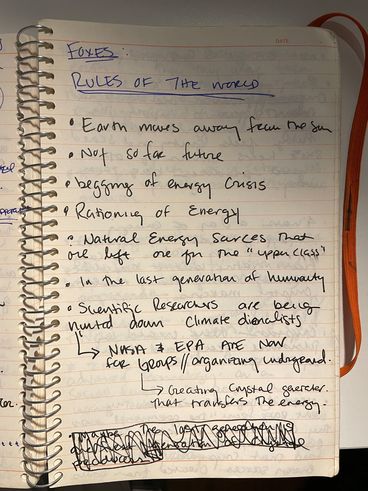 DATE
FOXES:
RULES OF THE WORLD
• Earth moves away from the sun
• Not so far future
• begging of energy crisis
• Rationing of Energy
• Natural Energy Sources that
are left are for the "upper class"
• In the last generation of humanity
• Scientific Researchers are being
hunted down Climate dienalists
↳ NASA & EPA ARE NOW
for groups // organizing underground.
↳ Creating Crystal
that transfers the energy.